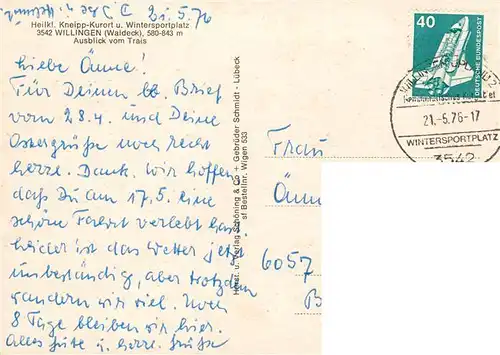 21.5.76
Heilkl. Kneipp-Kurort u. Wintersportplatz
3542 WILLINGEN (Waldeck), 580-843 m
Ausblick vom Trais
Liebe Änne!
Für Deinen lb. Brief
vom 28.4. und Deine
Ostergrüße noch recht
herzl. Dank. Wir hoffen
daß Du am 17.5. eine
schöne Fahrt verlebt hast
Leider ist das Wetter jetzt
unbeständig, aber trotzdem
wandern wir viel. Noch
8 Tage bleiben wir hier.
Alles Gute u. herzl. Grüße
Herst. u. Verlag Schöning & Co + Gebrüder Schmidt · Lübeck
sf Bestellnr. Wigen 533
Frau
Änn
6057
40
DEUTSCHE BUNDESPOST
21.-5.76-17
WINTERSPORTPLATZ
3542